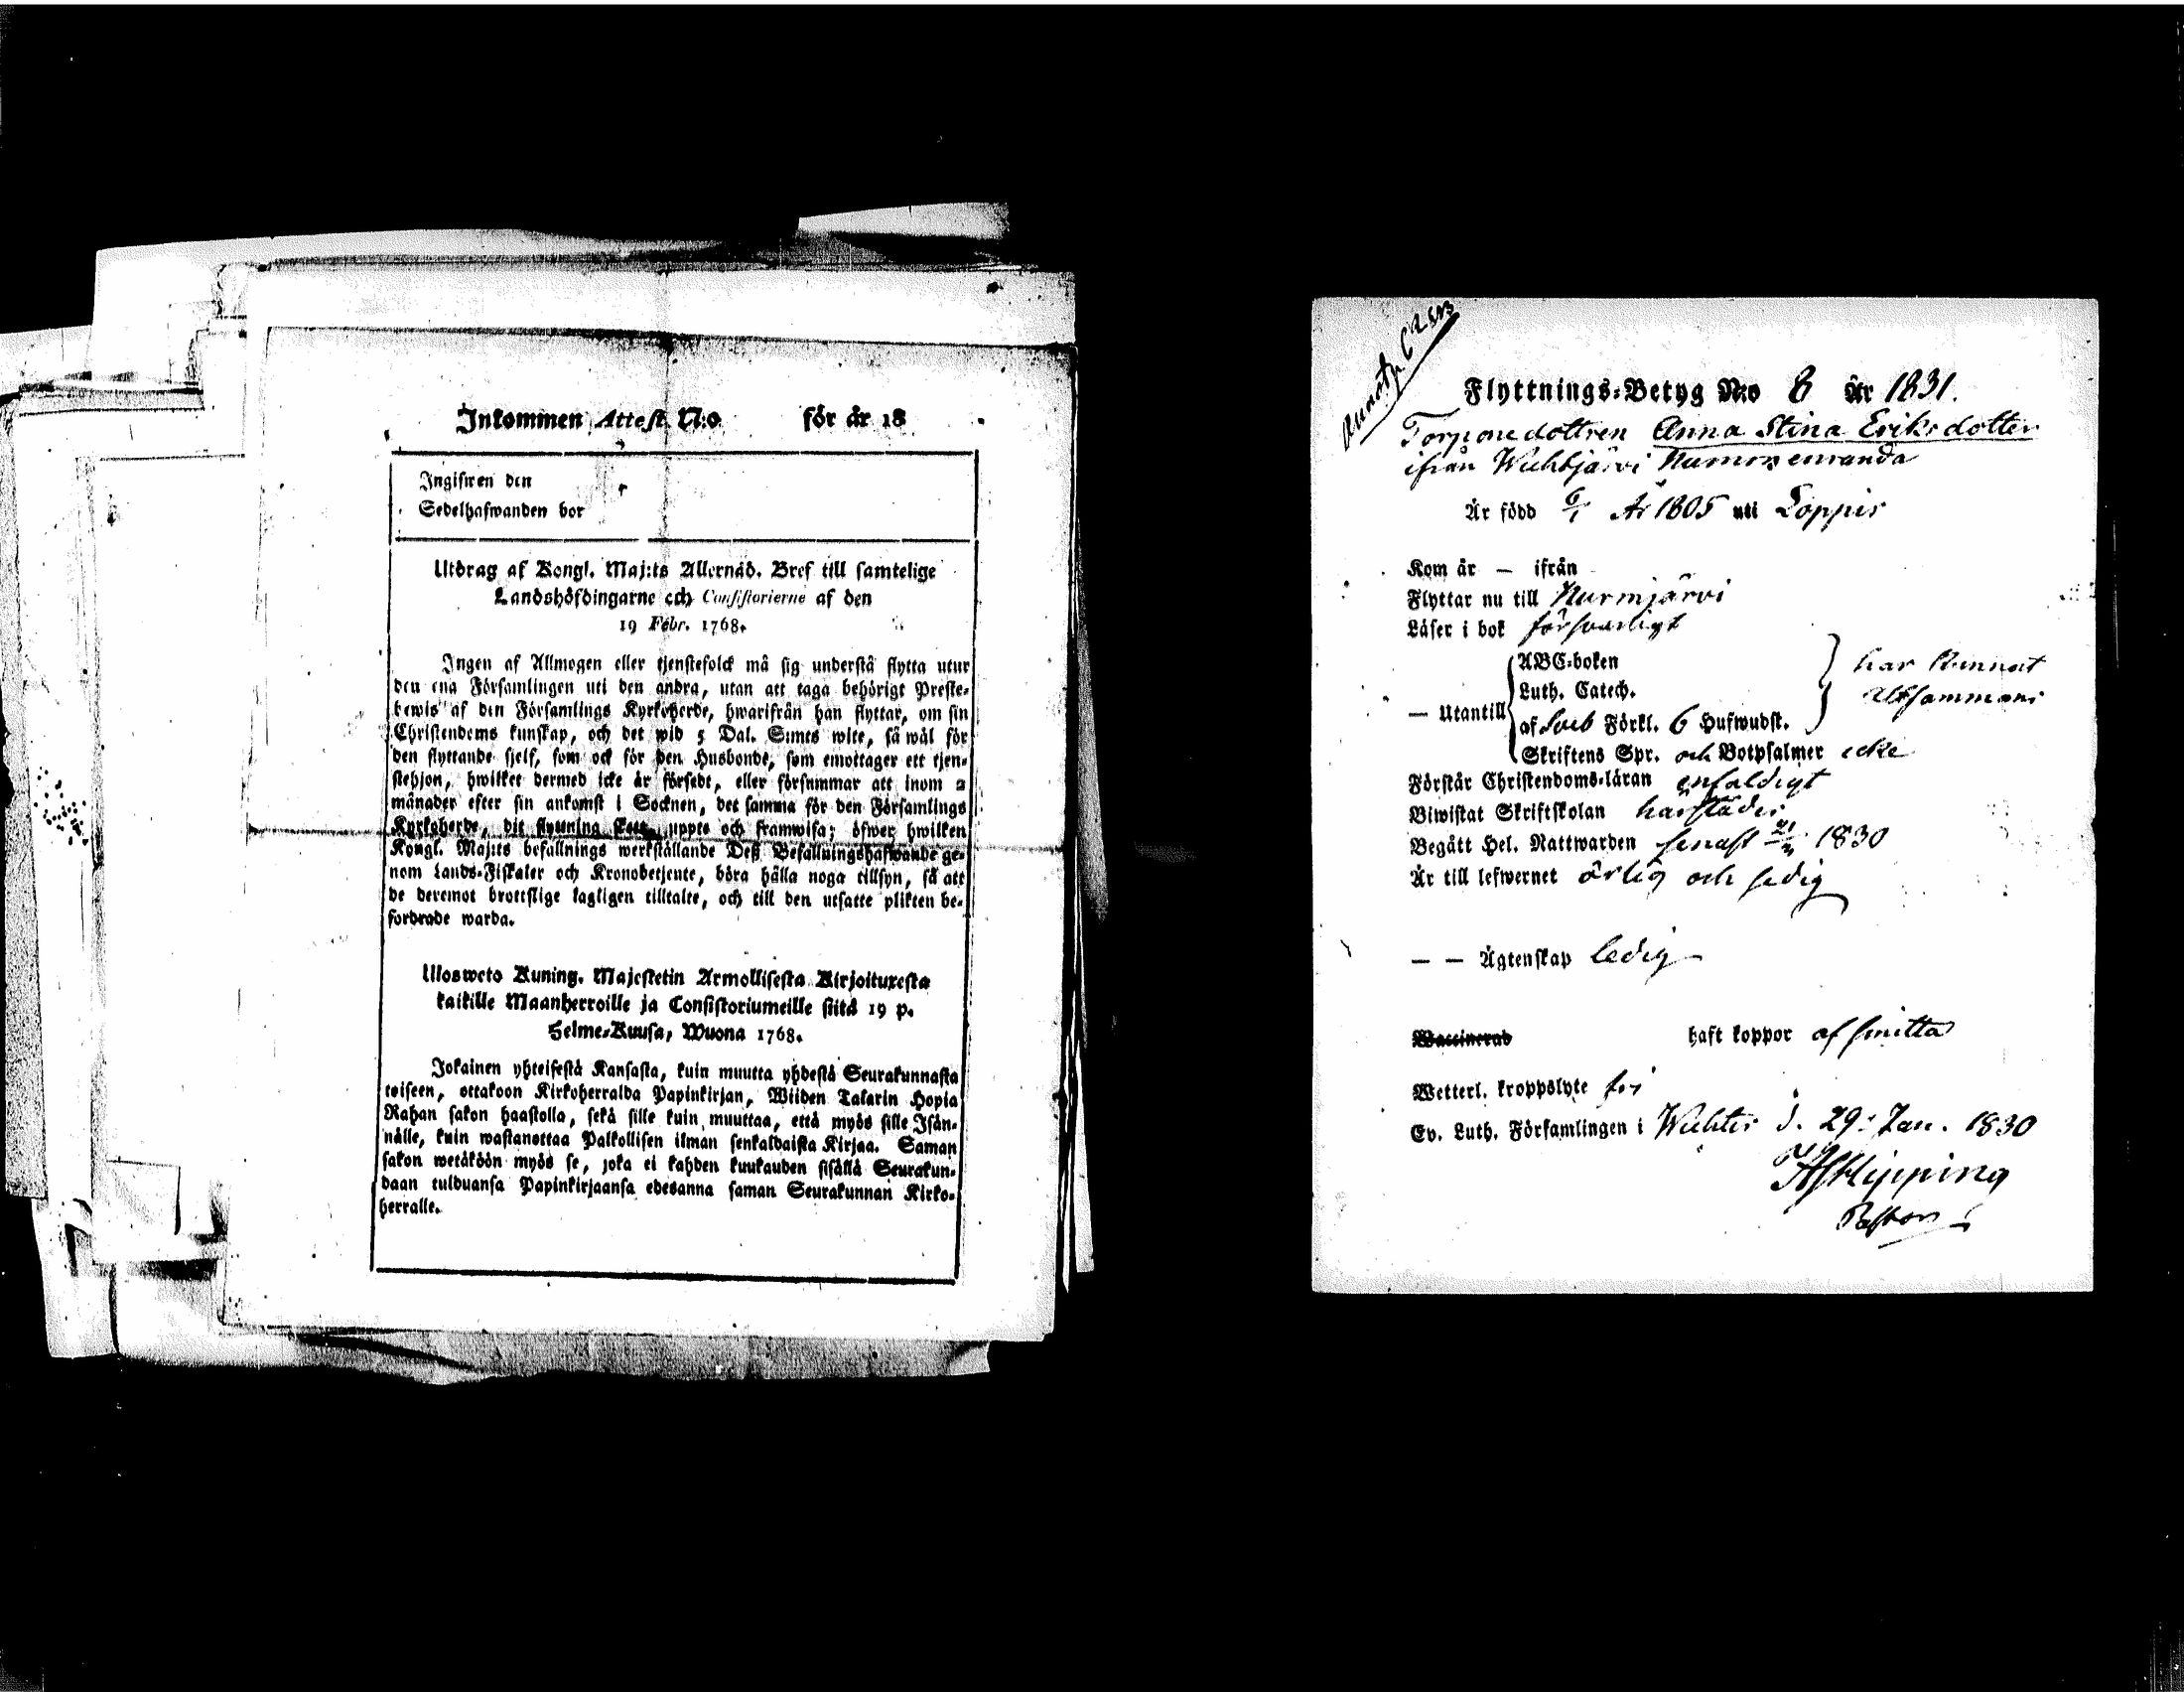 Inkommen Attest N:o för år 18
Ingifwen den
Sedelhafwanden bor
Utdrag af Kongl. Maj:ts Allernåd. Bref till samtelige
Landshöfdingarne och Consistorierne af den
19 Febr. 1768.
Ingen af Allmogen eller tjenstefolck må sig understå flytta utur
den ena Församlingen uti den andra, utan att taga behörigt Preste-
bewis af den Församlings Kyrkoherde, hwarifrån han flyttar, om sin
Christendoms kunskap, och det wid 5 Dal. S:mts wite, så wäl för
den flyttande sjelf, som ock för den Husbonde, som emottager ett tjen-
stehjon, hwilket dermed icke är försedt, eller försummar att inom 2
månader efter sin ankomst i Socknen, det samma för den Församlings
Kyrkoherde, dit flyttning skett, uppte och framwisa; öfwer hwilken
Kongl. Maj:ts befallnings werkställande Deß Befallningshafwande ge-
nom Lands-Fiskaler och Kronobetjente, böra hålla noga tillsyn, så att
de deremot brottslige lagligen tilltalte, och till den utsatte plikten be-
fordrade warda.
Ulosweto Kuning. Majestetin Armollisesta Kirjoituxesta
kaikille Maanherroille ja Consistoriumeille siitä 19 p.
Helme-Kuusa, Wuona 1768.
Jokainen yhteisestä Kansasta, kuin muutta yhdestä Seurakunnasta
toiseen, ottakoon Kirkoherralda Papinkirjan, Wiiden Talarin Hopia
Rahan sakon haastolla, sekä sille kuin muuttaa, että myös sille Isän-
nälle, kuin wastanottaa Palkollisen ilman senkaldaista Kirjaa. Saman
sakon wetäköön myös se, joka ei kahden kuukauden sisällä Seurakun-
daan tulduansa Papinkirjaansa edesanna saman Seurakunnan Kirko-
herralle.
Flyttnings-Betyg N:o 8 År 1831.
Torparedottren Anna Stina Eriksdotter
ifrån Wichtjärvi Nummenranda
Är född 6/1 År 1805 uti Loppis
Kom år — ifrån
Flyttar nu till Nurmjärvi
Läser i bok försvarligt
— Utantill
ABC-boken
Luth. Catech.
af Sveb Förkl. 6 Hufwudst.
har kunnat
Skriftens Spr. och Botpsalmer icke
Förstår Christendoms-läran enfaldigt
Biwistat Skriftskolan härstädes
Begått Hel. Nattwarden senast 1830
Är till lefwernet ärlig och sedig
— — Ägtenskap ledig
Waccinerad haft koppor af smitta
Wetterl. kroppslyte fri
Ev. Luth. Församlingen i Wichtis d. 29 Jan. 1830
Pastor